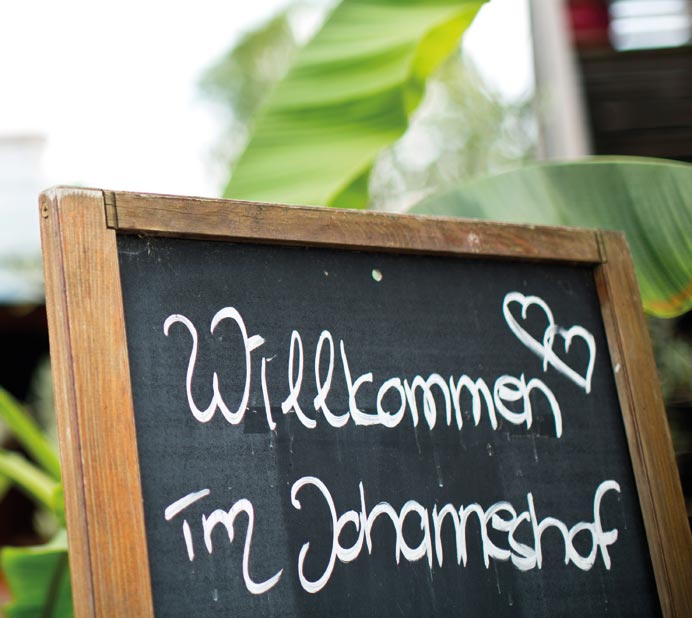 Willkommen
im Johanneshof